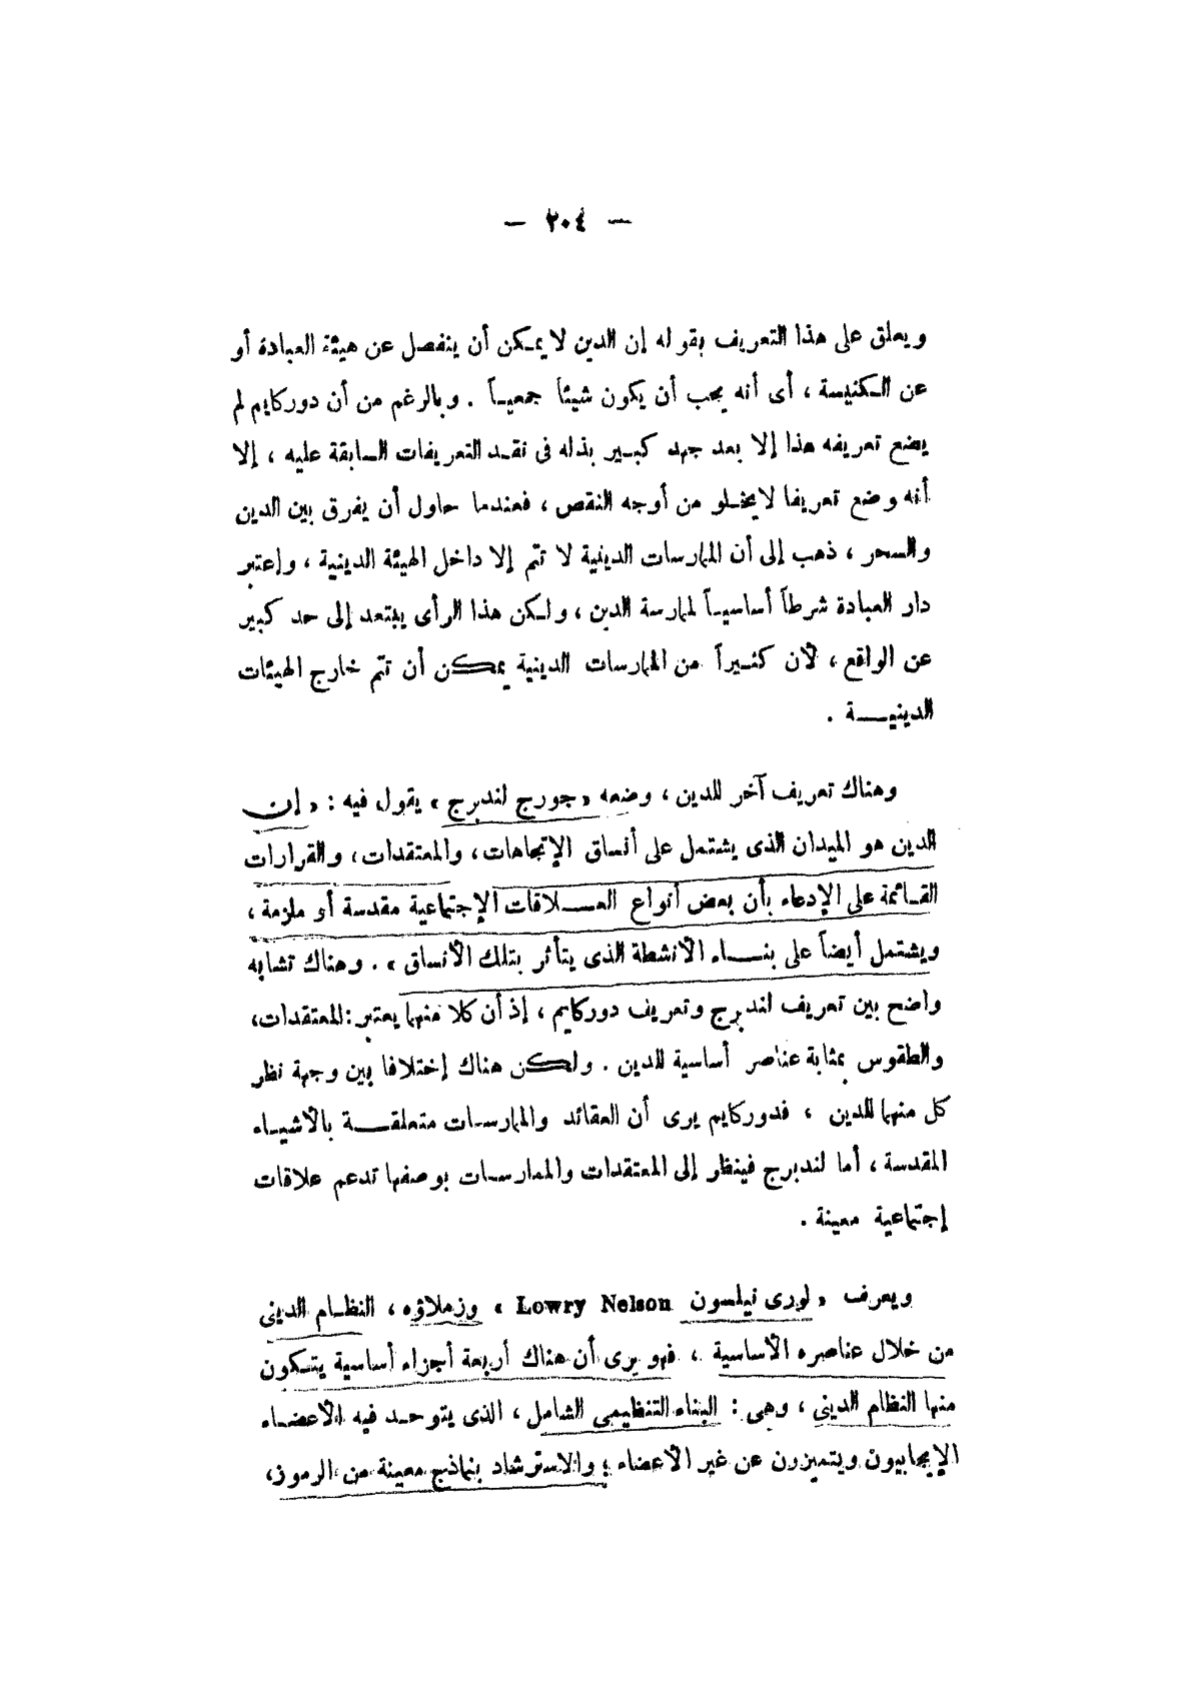 — ٢٠٤ —
ويعلق على هذا التعريف بقوله إن الدين لا يمكن أن ينفصل عن هيئة العبادة أو
عن الكنيسة ، أى أنه يجب أن يكون شيئاً جمعياً . وبالرغم من أن دوركايم لم
يضع تعريفه هذا إلا بعد جهد كبير بذله فى نقد التعريفات السابقة عليه ، إلا
أنه وضع تعريفا لا يخلو من أوجه النقص ، فعندما حاول أن يفرق بين الدين
والسحر ، ذهب إلى أن الممارسات الدينية لا تتم إلا داخل الهيئة الدينية ، وإعتبر
دار العبادة شرطاً أساسياً لممارسة الدين ، ولكن هذا الرأى يبتعد إلى حد كبير
عن الواقع ، لأن كثيراً من الممارسات الدينية يمكن أن تتم خارج الهيئات
الدينية .
وهناك تعريف آخر للدين ، وضعه «جورج لندبرج» يقول فيه : « إن
الدين هو الميدان الذى يشتمل على أنساق الإتجاهات ، والمعتقدات ، والقرارات
القائمة على الإدعاء بأن بعض أنواع العلاقات الإجتماعية مقدسة أو ملزمة ،
ويشتمل أيضاً على بناء الأنشطة الذى يتأثر بتلك الأنساق » . وهناك تشابه
واضح بين تعريف لندبرج وتعريف دوركايم ، إذ أن كلا منهما يعتبر : المعتقدات ،
والطقوس بمثابة عناصر أساسية للدين . ولكن هناك إختلافا بين وجهة نظر
كل منهما للدين ، فدوركايم يرى أن العقائد والممارسات متعلقة بالأشياء
المقدسة ، أما لندبرج فينظر إلى المعتقدات والممارسات بوصفها تدعم علاقات
إجتماعية معينة .
ويعرف « لورى نيلسون Lowry Nelson » وزملاؤه ، النظام الدينى
من خلال عناصره الأساسية ، فهو يرى أن هناك أربعة أجزاء أساسية يتكون
منها النظام الدينى ، وهى : البناء التنظيمى الشامل ، الذى يتوحد فيه الأعضاء
الإيجابيون ويتميزون عن غير الأعضاء ؛ والاسترشاد بنماذج معينة من الرموز،